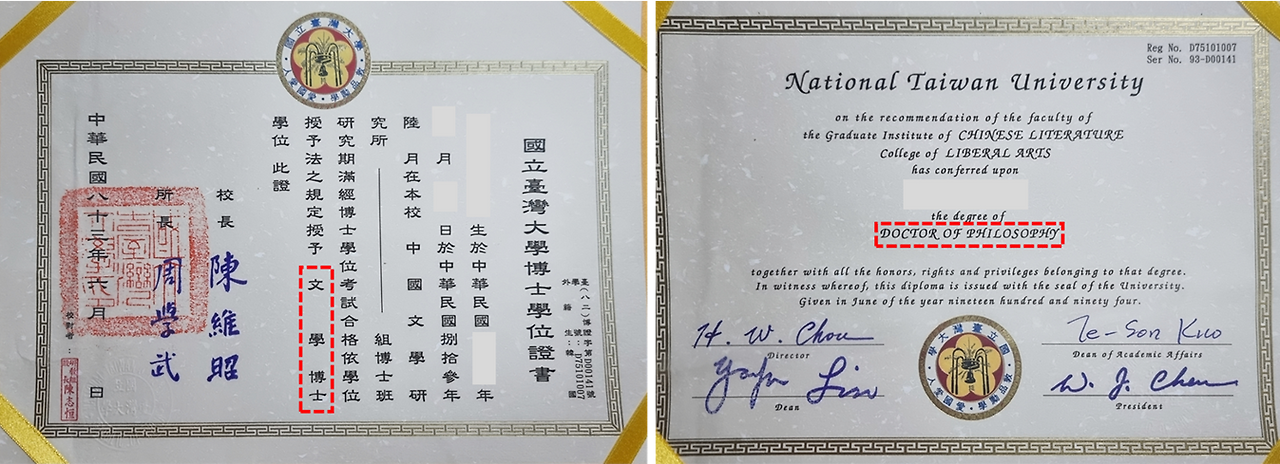 國立臺灣大學
敦品勵學・愛國愛人
國立臺灣大學博士學位證書
臺(八二)博證字第D00141號
學號:D75101007
外籍生:韓
生於中華民國 年
月 日於中華民國捌拾參年
陸月在本校中國文學研
究所 組博士班
研究期滿經博士學位考試合格依學位
授予法之規定授予文學博士
學位此證
校長 陳維昭
所長 周學武
中華民國八十三年六月 日
校對者:
陳志恒
Reg No. D75101007
Ser No. 93-D00141
National Taiwan University
on the recommendation of the faculty of
the Graduate Institute of CHINESE LITERATURE
College of LIBERAL ARTS
has conferred upon
the degree of
DOCTOR OF PHILOSOPHY
together with all the honors, rights and privileges belonging to that degree.
In witness whereof, this diploma is issued with the seal of the University.
Given in June of the year nineteen hundred and ninety four.
H. W. Chou
Director
Te-Son Kuo
Dean of Academic Affairs
Lin
Dean
W. J. Chen
President
國立臺灣大學
敦品勵學・愛國愛人